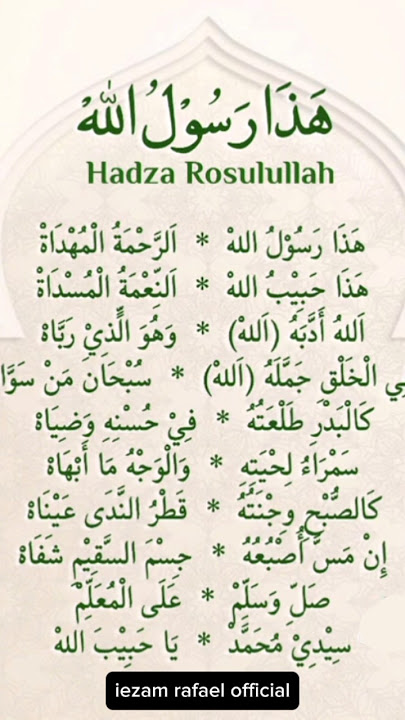 هَذَا رَسُوْلُ اللهْ
Hadza Rosulullah
هَذَا رَسُوْلُ اللهْ * اَلرَّحْمَةُ الْمُهْدَاةْ
هَذَا حَبِيْبُ اللهْ * اَلنِّعْمَةُ الْمُسْدَاةْ
اَللهُ أَدَّبَهُ (اَللهْ) * وَهُوَ الَّذِيْ رَبَّاهْ
الْخَلْقِ جَمَّلَهُ (اَللهْ) * سُبْحَانَ مَنْ
كَالْبَدْرِ طَلْعَتُهُ * فِيْ حُسْنِهِ وَضِيَاهْ
سَمْرَاءُ لِحْيَتِهِ * وَالْوَجْهُ مَا أَبْهَاهْ
كَالصُّبْحِ وِجْنَتُهُ * قَطْرُ النَّدَى عَيْنَاهْ
إِنْ مَسَّ أُصْبُعُهُ * جِسْمَ السَّقِيْمِ شَفَاهْ
صَلِّ وَسَلِّمْ * عَلَى الْمُعَلِّمْ
سِيْدِيْ مُحَمَّدْ * يَا حَبِيْبَ اللهْ
iezam rafael official